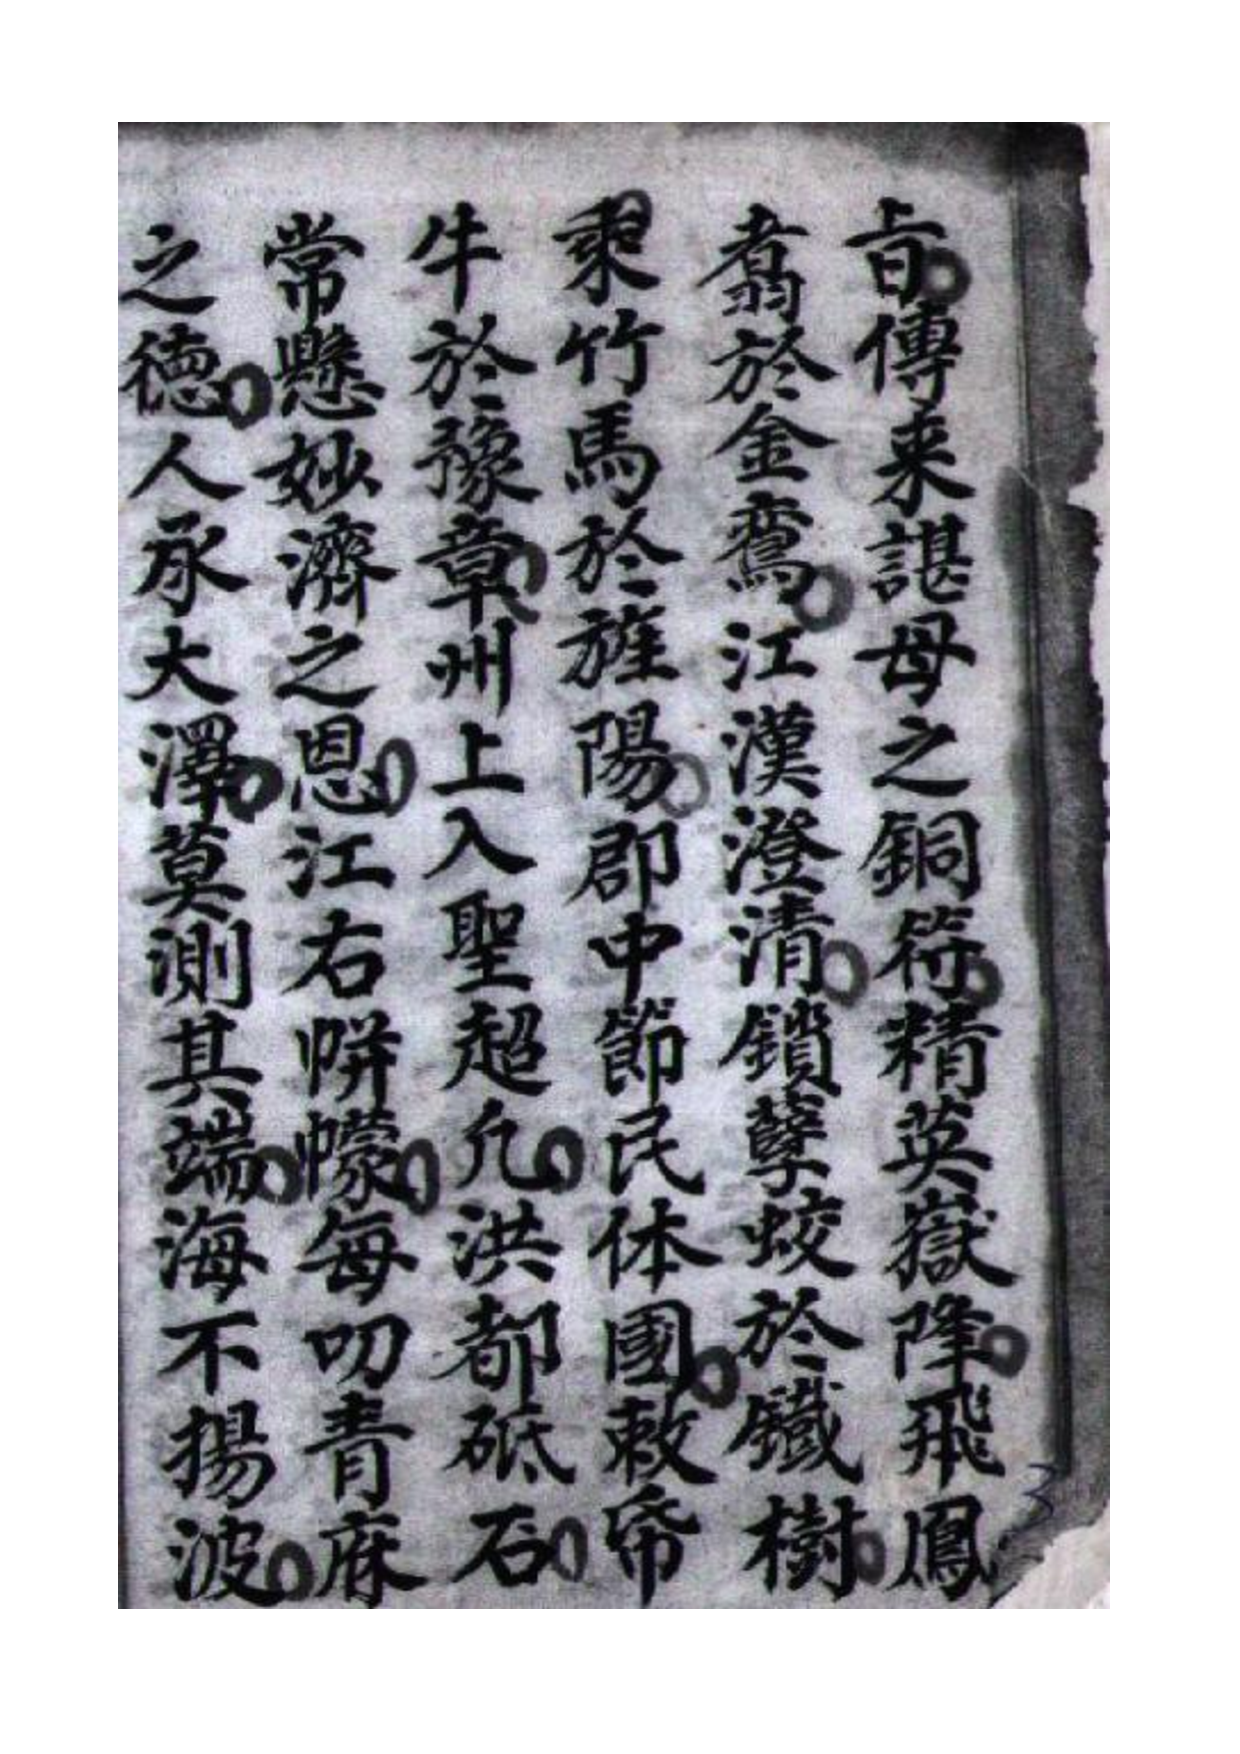 旨傳来諶母之銅符精英嶽降飛鳳
翥於金鸞江漢澄清鎖孽蛟於鐵樹
乘竹馬於旌陽郡中節民体國敕帝
牛於豫章州上入聖超凢洪都砥石
常懸妙濟之恩江右帡幪每叨青庥
之德人承大澤莫測其端海不揚波
3